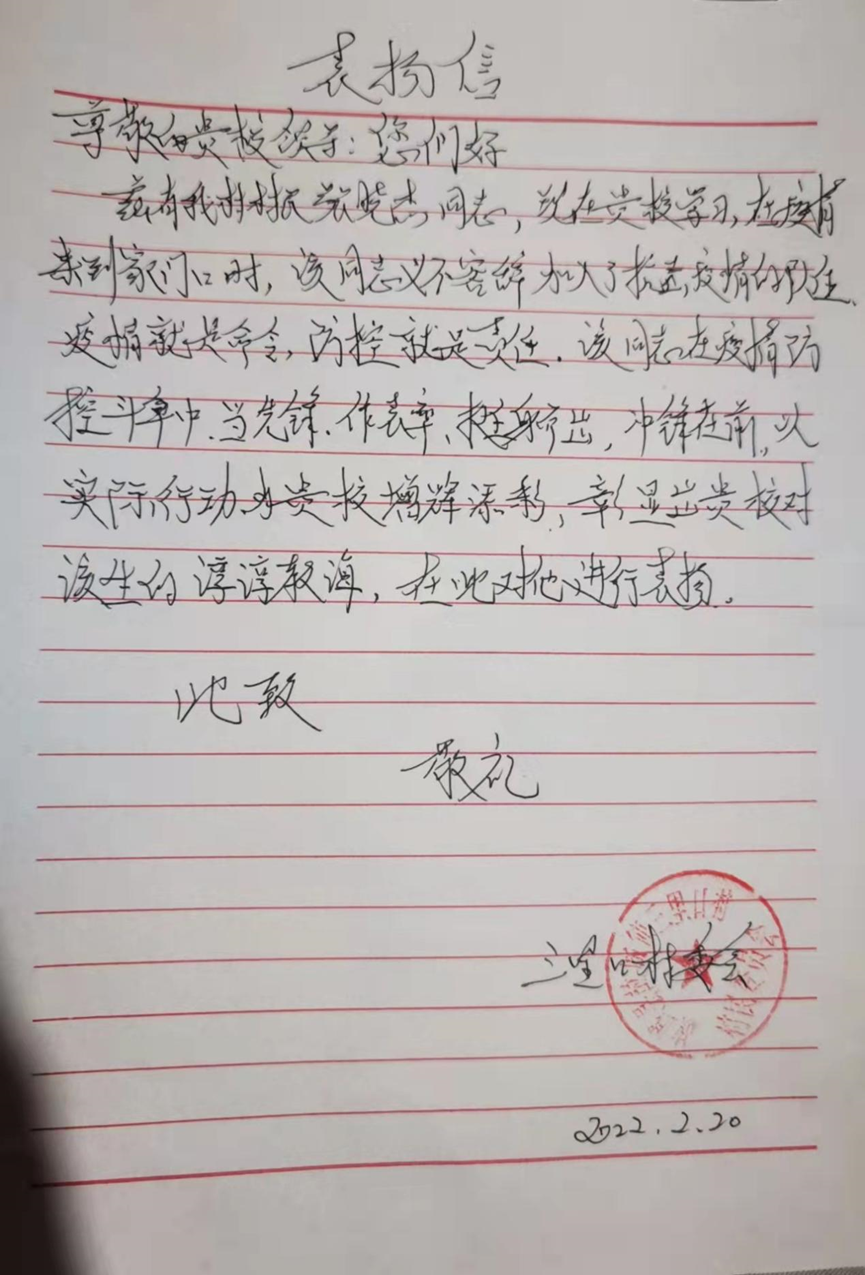 表扬信
尊敬的贵校领导：您们好
兹有我村村民张晓杰同志，现在贵校学习，在疫情
来到家门口时，该同志义不容辞加入了抗击疫情的队伍、
疫情就是命令，防控就是责任．该同志在疫情防
控斗争中．当先锋．作表率、挺身而出，冲锋在前，以
实际行动为贵校增辉添彩，彰显出贵校对
该生的谆谆教诲，在此对他进行表扬．
此致
敬礼
三里口村委会
三里口村
村民委员会
2022.2.20